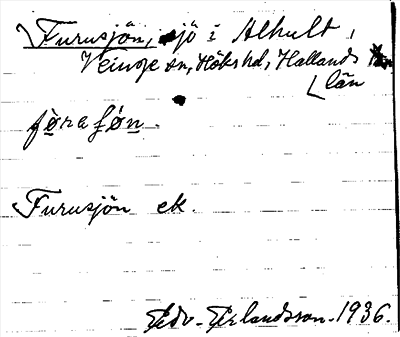 Furusjön, sjö i Alhult,
Veinge sn, Höks hd, Hallands
län
føraføn.
Furusjön ek.
Edv. Erlandsson. 1936.